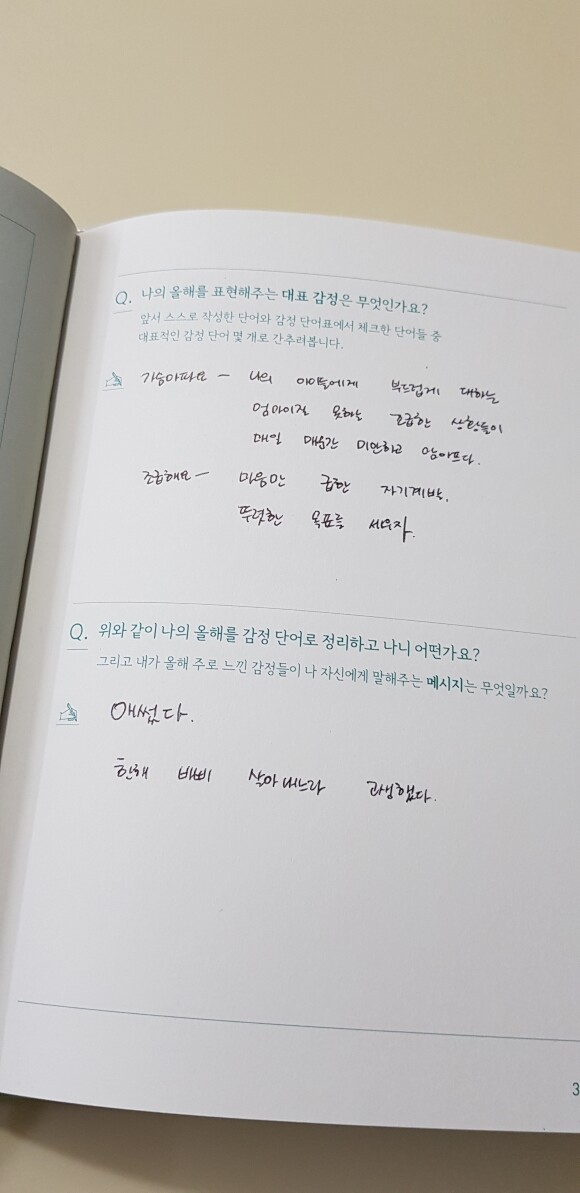 Q. 나의 올해를 표현해주는 대표 감정은 무엇인가요?
앞서 스스로 작성한 단어와 감정 단어표에서 체크한 단어들 중
대표적인 감정 단어 몇 개로 간추려봅니다.
가슴아파요 - 나의 아이들에게 부드럽게 대하는
엄마이질 못하는 조급한 상황들이
매일 매순간 미안하고 맘아프다.
조급해요 - 마음만 급한 자기계발.
뚜렷한 목표를 세우자.
Q. 위와 같이 나의 올해를 감정 단어로 정리하고 나니 어떤가요?
그리고 내가 올해 주로 느낀 감정들이 나 자신에게 말해주는 메시지는 무엇일까요?
애썼다.
한해 바삐 살아내느라 고생했다.
3